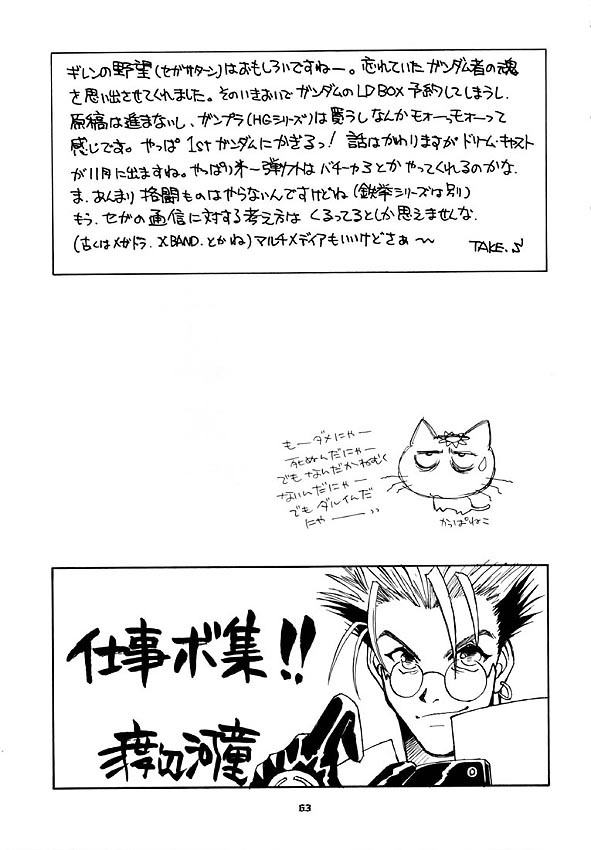 ギレンの野望(セガサターン)はおもしろいですねー。忘れていたガンダム者の魂
を思い出させてくれました。そのいきおいでガンダムのLD BOX 予約してしまうし、
原稿は進まないし、ガンプラ(HGシリーズ)は買うしなんかモォーッモォーって
感じです。やっぱ 1stガンダムにかぎるっ! 話はかわりますがドリーム・キャスト
が11月に出ますね。やっぱり 第一弾ソフトはバチャ3とかやってくれるのかな。
ま、あんまり格闘ものはやらないんですけどね(鉄拳シリーズは別)
もう、セガの通信に対する考え方は くるってるとしか思えませんな.
(古くはメガドラ. XBAND. とかね)マルチメディアもいいけどさぁ〜
TAKE.S
もーダメにゃー
死ぬんだにゃー
でもなんだかねむく
ないんだにゃー
でもダルイんだ
にゃー
かっぱねこ
仕事ボ集!!
渡辺河童
63